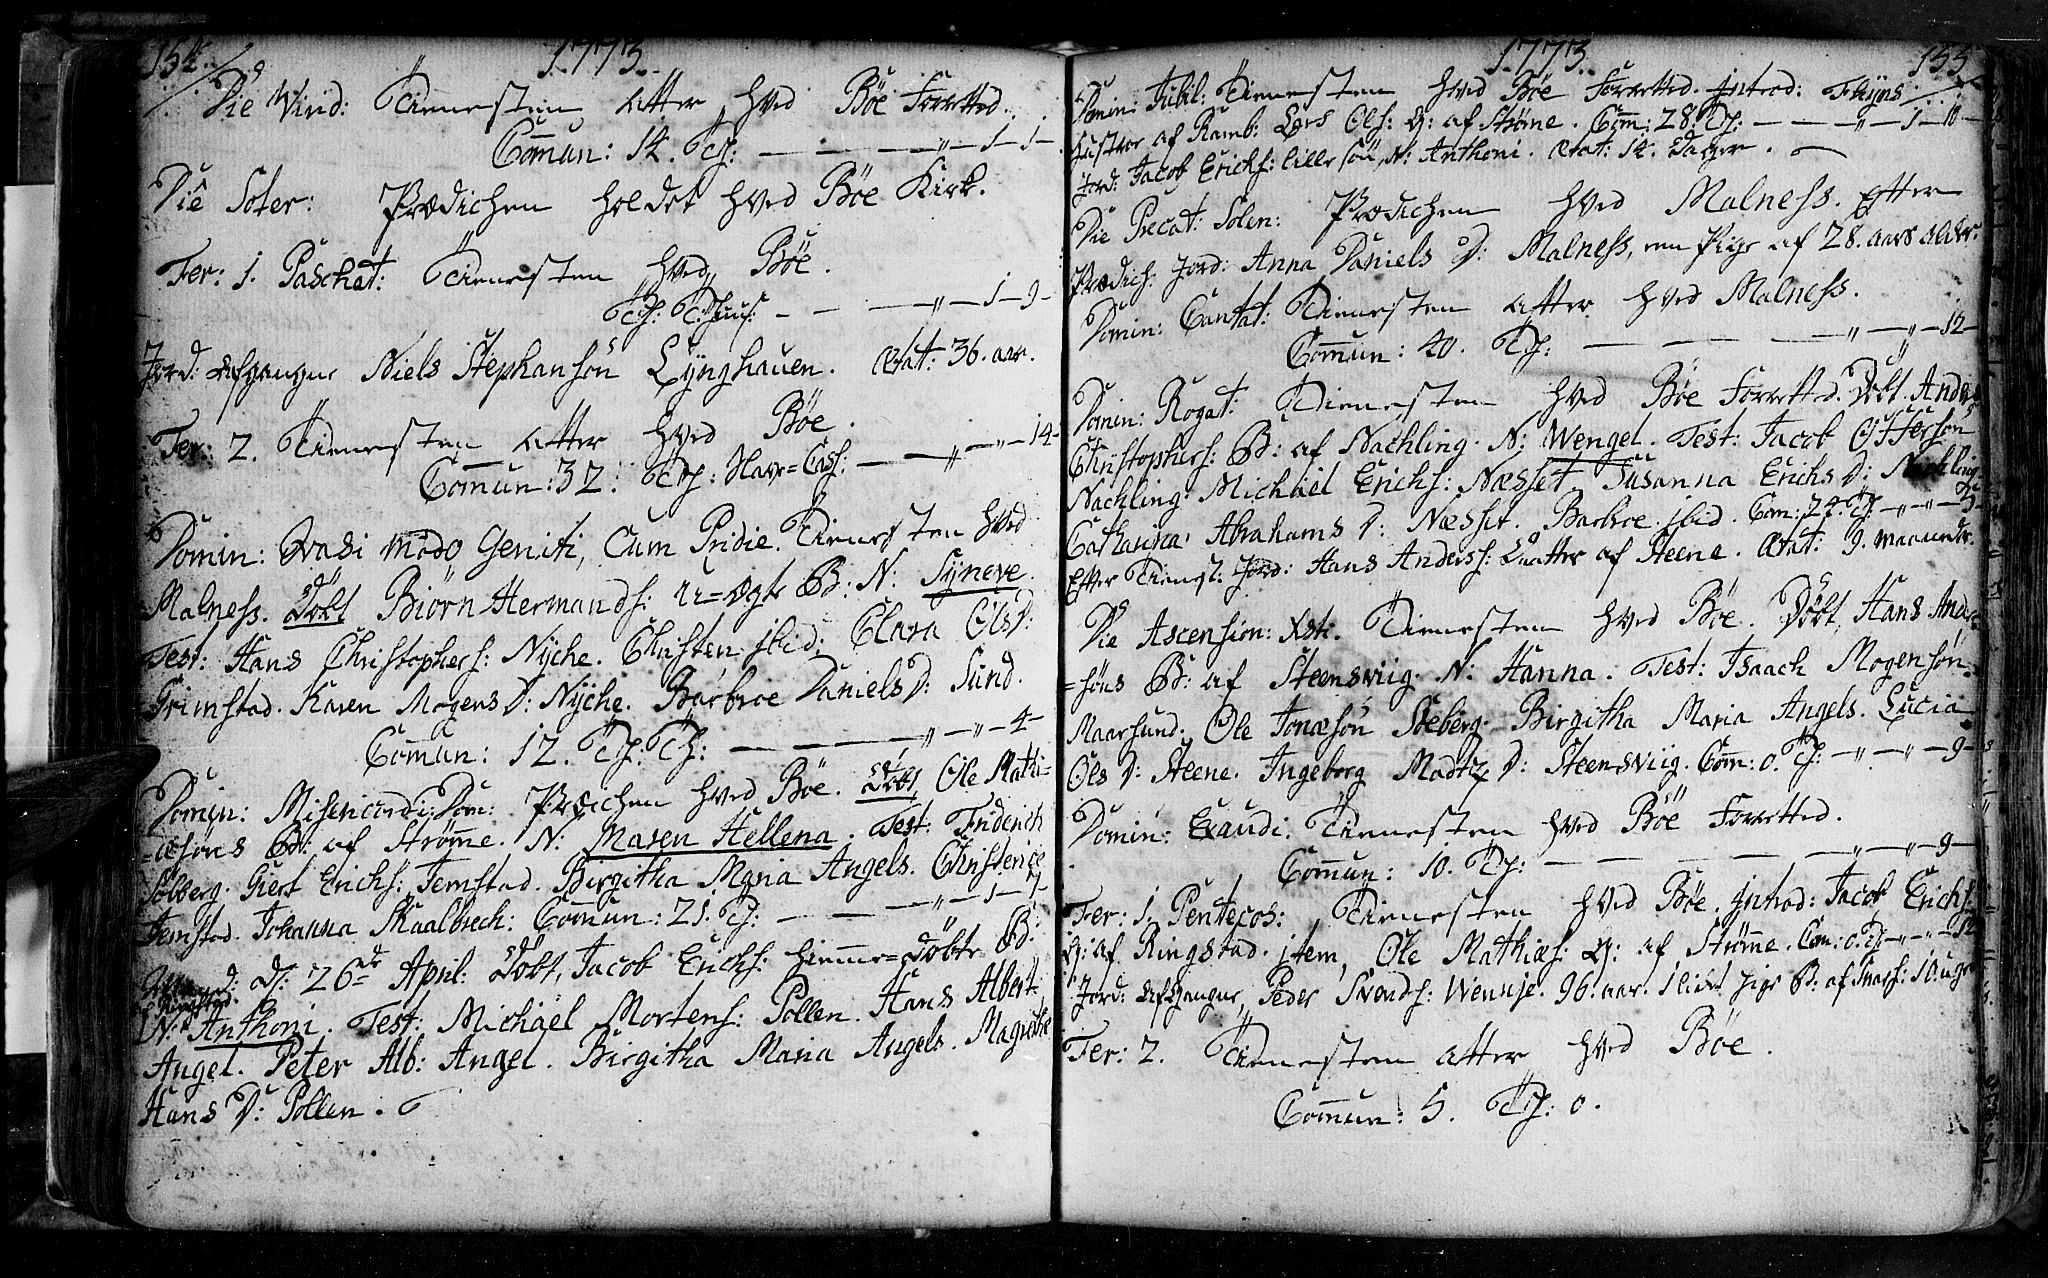 154. 1773.
Die Virid: Tienesten atter hved Böe Forretted.
Com̄un: 14. Tf: — — — „ — 1 — 1 —
Die Soter: Prædichen holdet hved Böe Kirk.
Fer: 1. Paschat: Tienesten hved Böe.
— — — „ — 1 — 9 —
Jord: afgangne Niels Stephansön Lÿnghauen. Ætat: 36. aar.
Fer: 2. Tienesten atter hved Böe.
Com̄un: 32. Tf: — „ — „ — 14 —
Domin: Qvasi modo Geniti, Cum Pridie. Tienesten hved
Malness. Döbt Biörn Hermands: u=ægte B: N: Sÿneve.
Test: Hans Christophers: Nÿche. Christen ibid: Clara Ols D:
Grimstad. Karen Mogens D: Nÿche. Barbroe Daniels D: Sund.
Com̄un: 12. Tf: — — — „ — „ — 4 —
Domin: Misericordi: Dom: Prædichen hved Böe. Döbt, Ole Mathi=
=æsöns B: af Ström̄e. N: Maren Hellena. Test: Friderich
Solberg. Giert Erichs: Jemstad. Birgitha Maria Angels. Christence
Jemstad. Johanna Skaalbrech: Com̄un: 21. Tf: — — — „ — 1 — 7 —
d: 26de April: Döbt, Jacob Erichs: hiem̄e=döbte B:
af Ringstad.
N: Anthoni. Test: Michäel Mortens: Pollen. Hans Albert
Angel. Peter Alb: Angel. Birgitha Maria Angels. Magrethe
Hans D: Pollen.
1773. 155
Domin: Jubil: Tienesten hved Böe Forretted. Introd: Thÿns
hustroe af Ramb: Lars Ols: Q: af Ström̄e. Com̄: 28. Tf: — — — „ — 1 — 10 —
Jord: Jacob Erichs: lille sön, N: Anthoni. Ætat: 14. Dager.
Die Precat: Solen: Prædichen hved Malness. Efter
Prædich: Jord: Anna Daniels D: Malness, een Pige af 28. aars alder.
Domin: Cantat: Tienesten atter hved Malness.
Com̄un: 40. Tf: — — — — „ — „ — 12 —
Domin: Rogat: Tienesten hved Böe Forretted. Döbt. Anders
Christophers: B: af Nachling. N: Wengel. Test: Jacob Offersön
Nachling. Michäel Erichs: Næsset. Susanna Erichs D: Nachling.
Catharina Abrahams D: Næsset. Barbroe ibid. Com: 24. Tf: — „ — „ — 3 —
Efter Tienest: Jord: Hans Anders: Daatter af Steene. Ætat: 9. maaneder.
Die Ascension: Xsti. Tienesten hved Böe. Döbt, Hans Ander=
=söns B: af Steensviig. N: Hanna. Test: Isaach Mogensön
Maarsund. Ole Jonæsön Soeberg. Birgitha Maria Angels. Lucia
Ols D: Steene. Ingeborg Madtz D: Steensviig. Com̄: 0. Tf: — „ — „ — 9 —
Domin: Exaudi: Tienesten hved Böe Forretted.
Com̄un: 10. Tf: — — — — „ — „ — 9 —
Fer: 1. Pentecos: Tienesten hved Böe. Introd: Jacob Erichs:
Q: af Ringstad. item, Ole Mathiæs: Q: af Ström̄e. Com: 0. Tf: — „ — „ — 12
Jord: Afgangne, Peder Svends: Wennie. 96. aar.
Fer: 2. Tienesten atter hved Böe.
Com̄un: 5. Tf: 0.